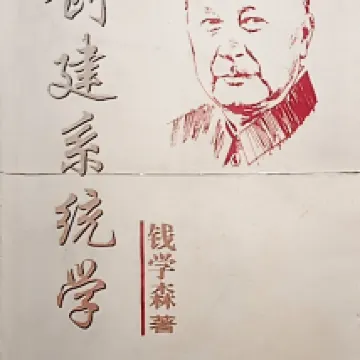 创建系统学
钱学森著